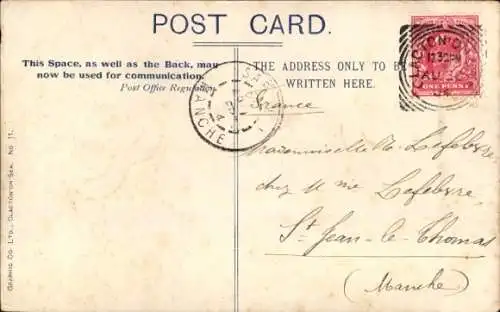 POST CARD.
This Space, as well as the Back, may
now be used for communication.
Post Office Regulation.
THE ADDRESS ONLY TO BE
WRITTEN HERE.
ONE PENNY
MANCHE
France
Mademoiselle Lefebvre
chez Mme Lefebvre
St Jean-le-Thomas
(Manche)
GRAPHIC CO. LTD., CLACTON-ON-SEA. NO. 11.